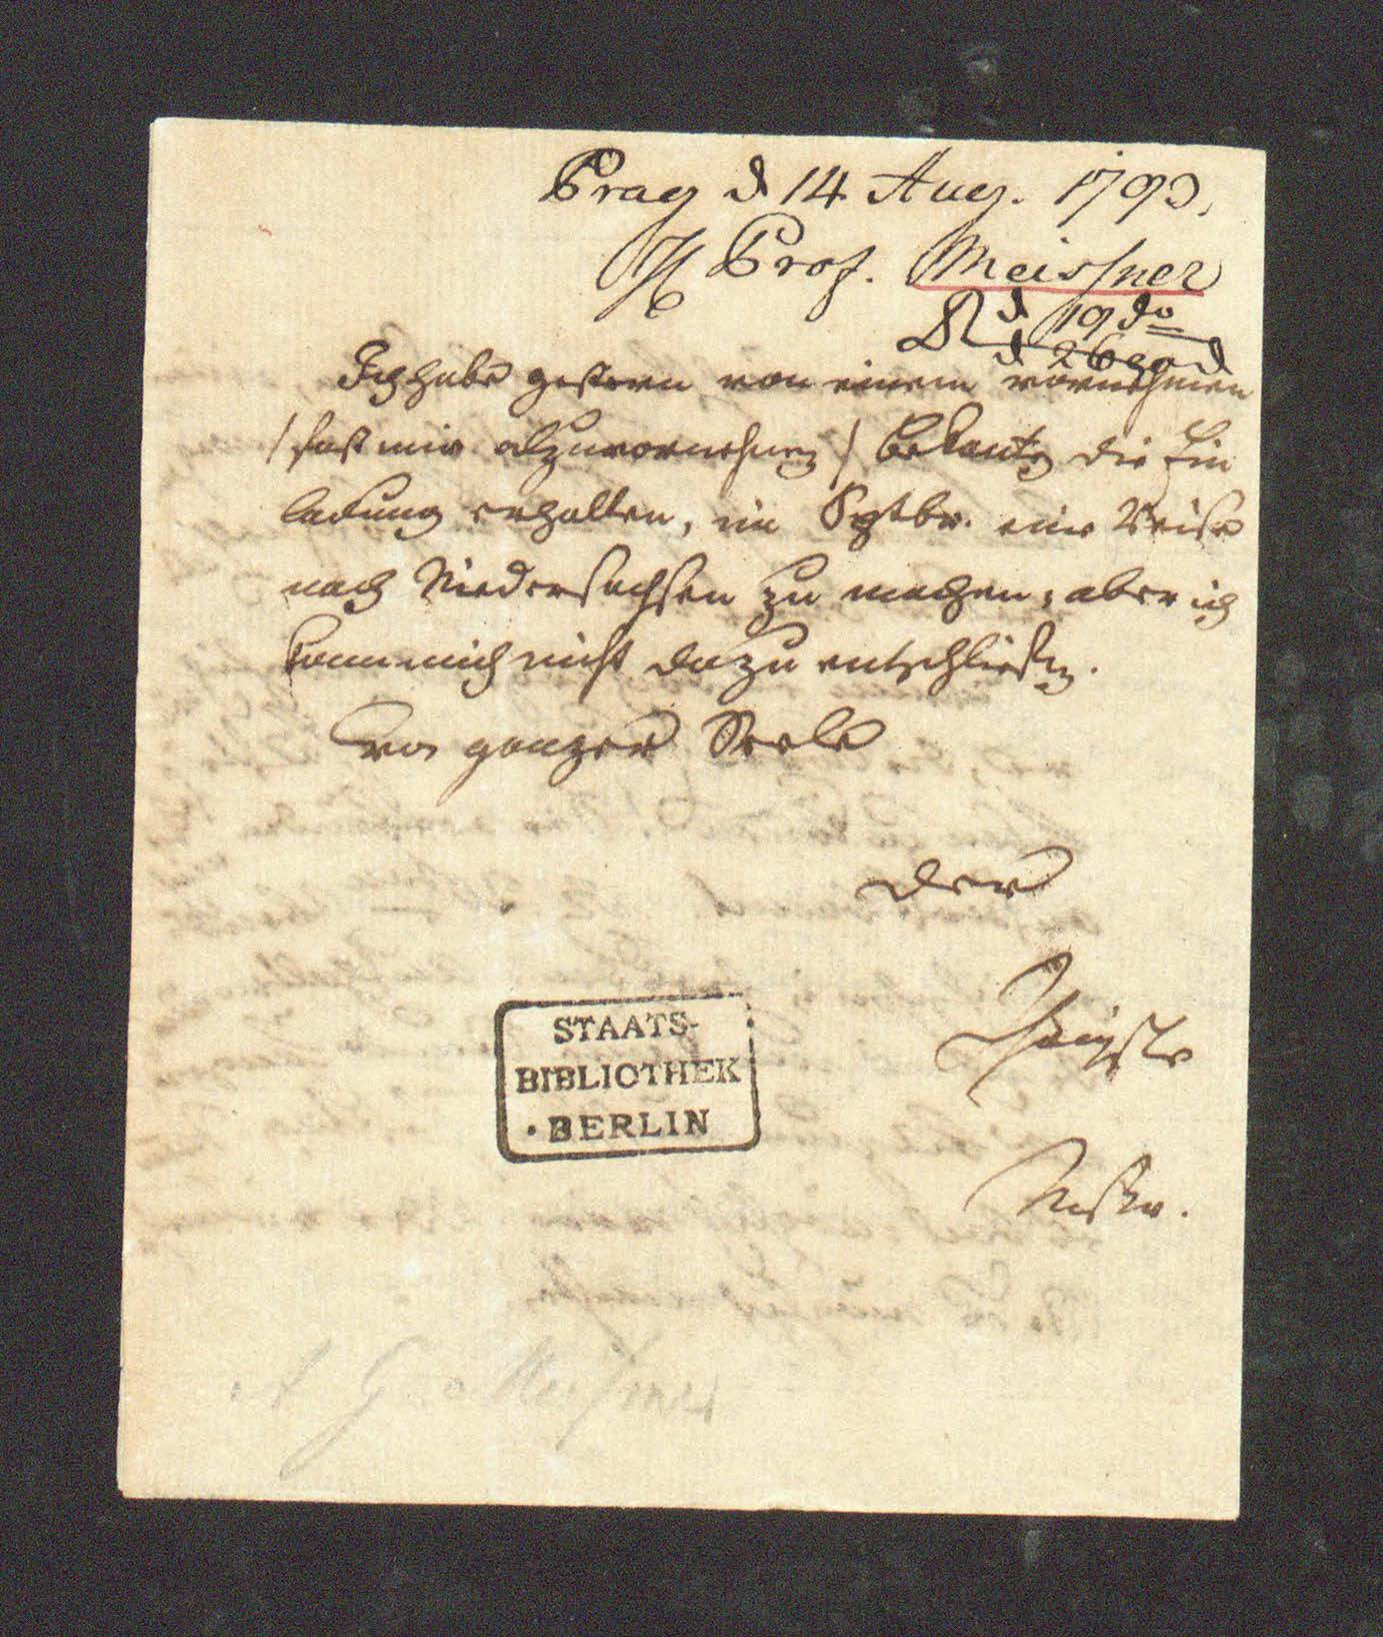 Prag d 14 Aug. 1793.
H Prof. Meissner
d 19 do
d 26
Ich habe gestern von einem vornehmen
/ fast mir alzuvornehmen / Bekanten die Ein
ladung erhalten, im Septbr. eine Reise
nach Niedersachsen zu machen; aber ich
kann mich nicht dazu entschließen.
Von ganzer Seele
der
Ihrigste
Mßnr.
STAATS-
BIBLIOTHEK
• BERLIN
A G Meißner